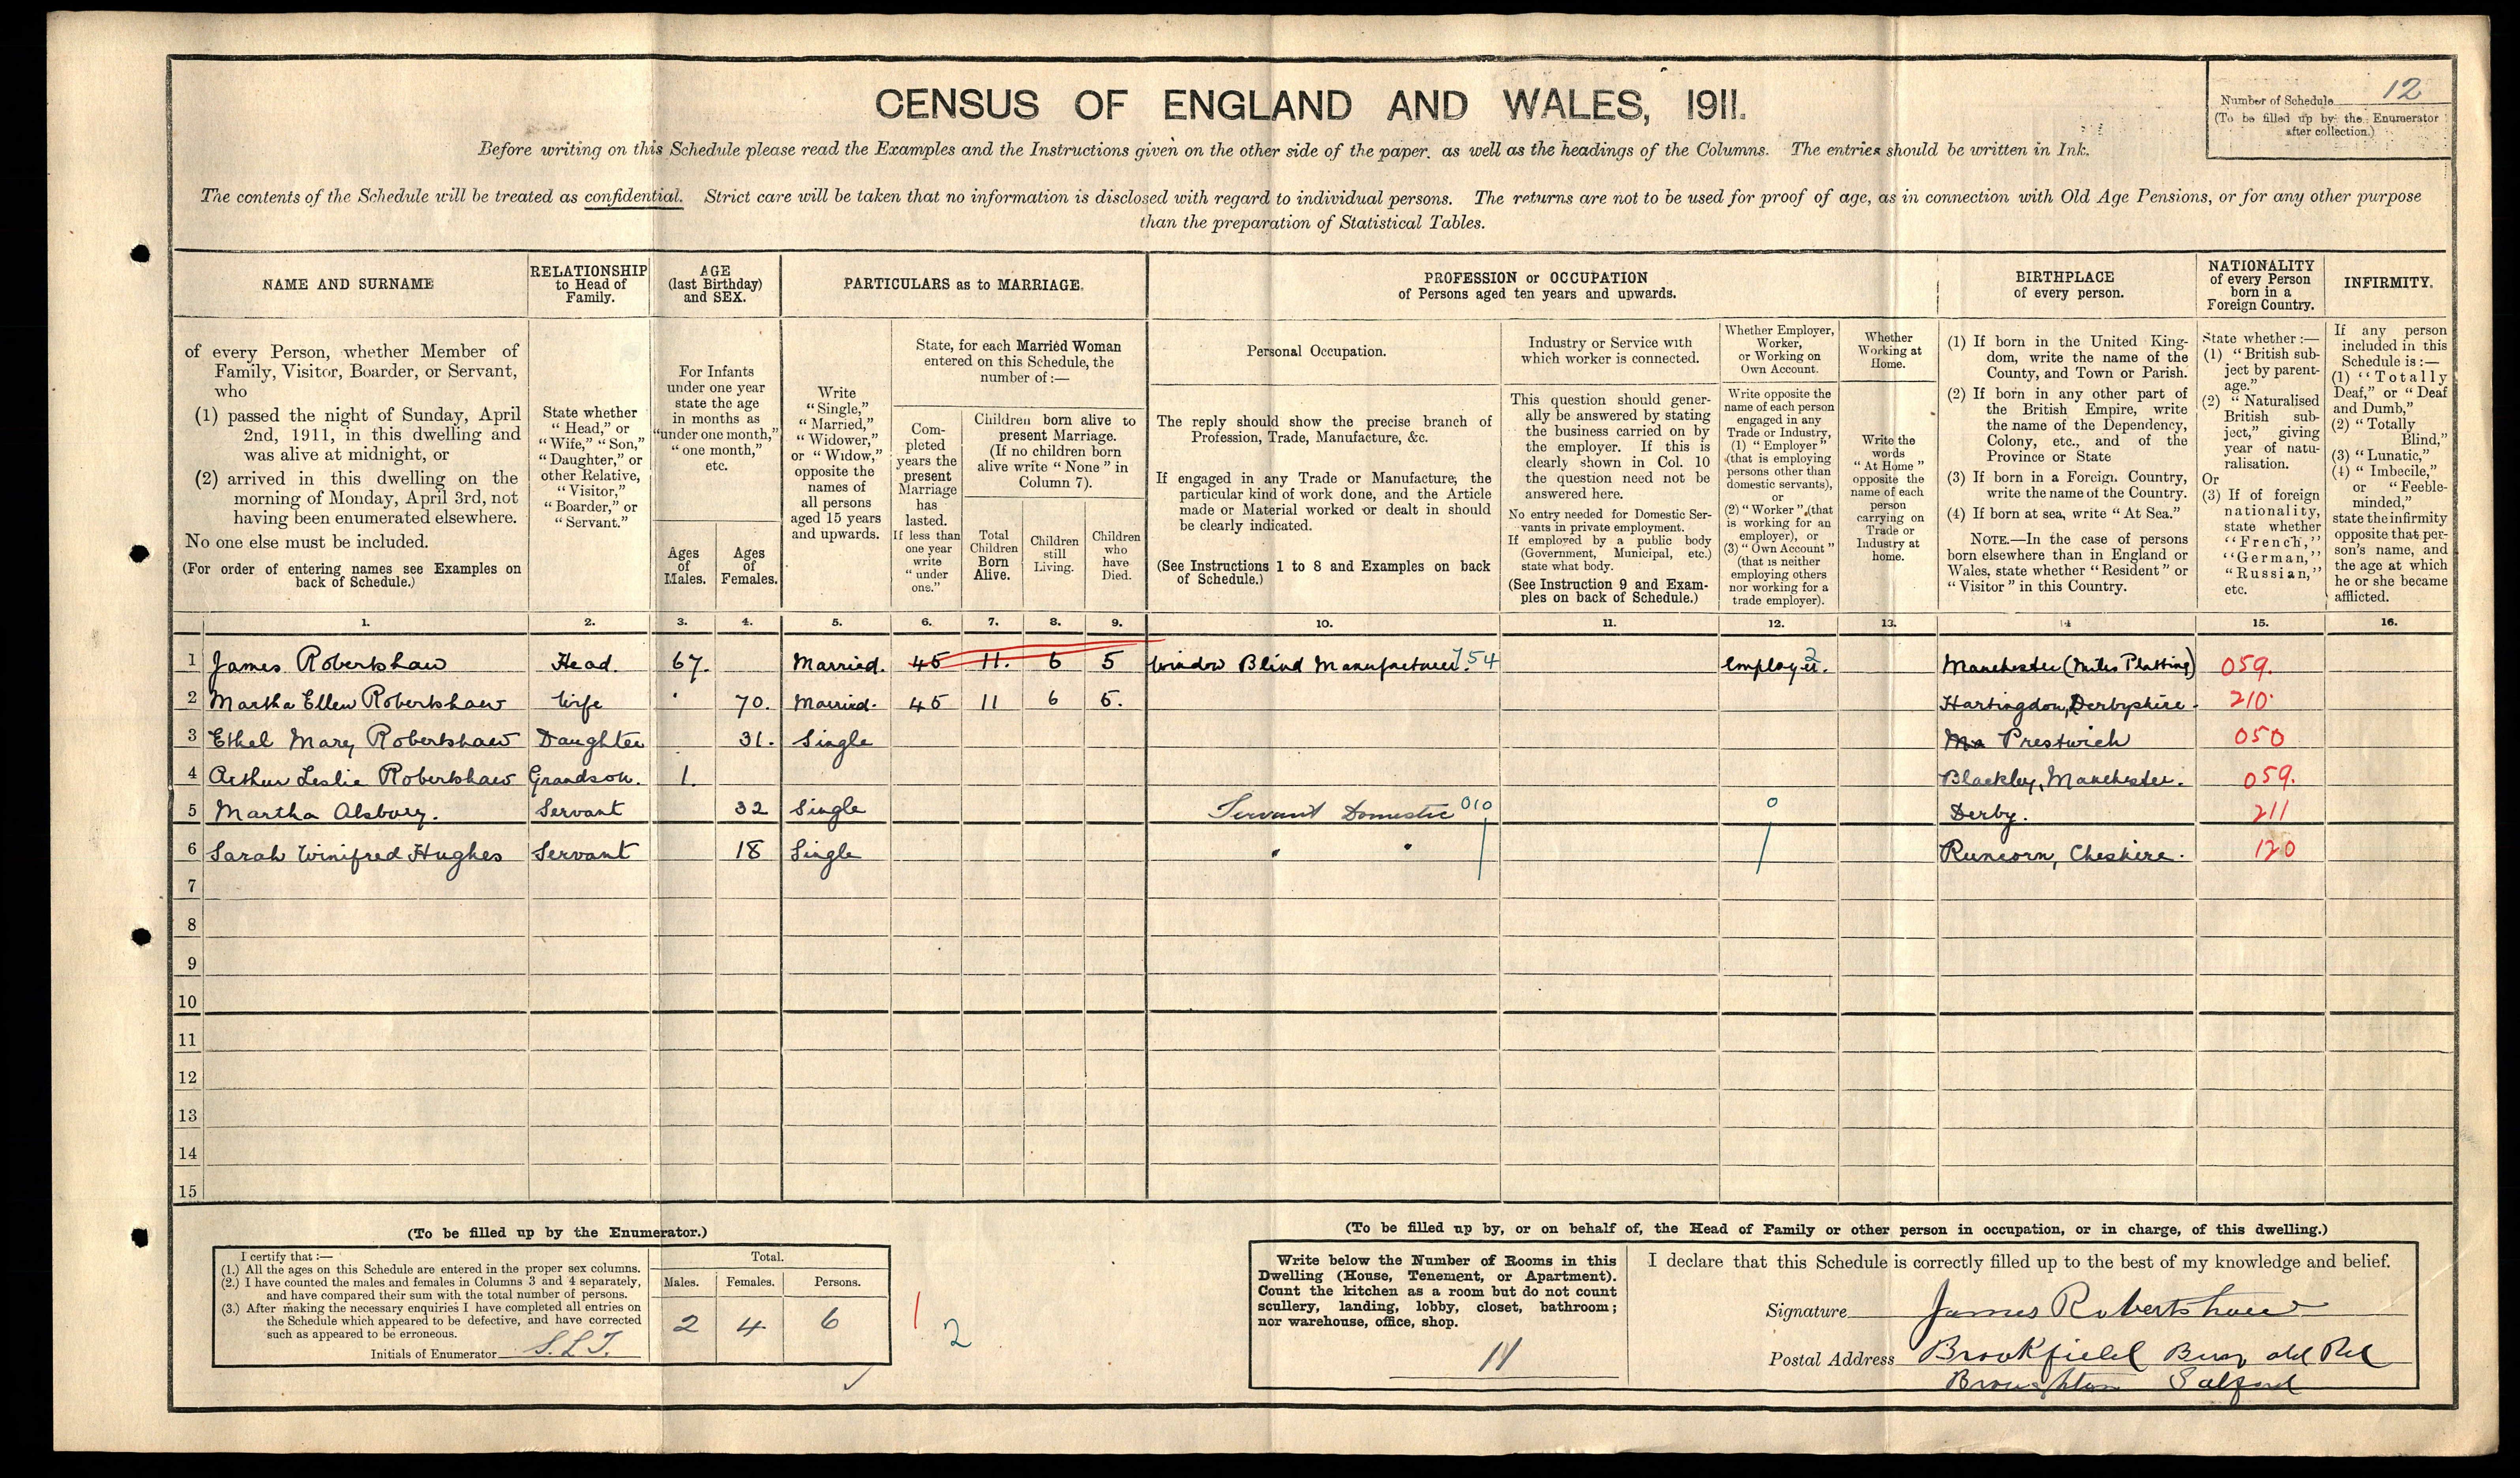 CENSUS OF ENGLAND AND WALES, 1911.
Number of Schedule 12
(To be filled up by the Enumerator
after collection.)
Before writing on this Schedule please read the Examples and the Instructions given on the other side of the paper, as well as the headings of the Columns. The entries should be written in Ink.
The contents of the Schedule will be treated as confidential. Strict care will be taken that no information is disclosed with regard to individual persons. The returns are not to be used for proof of age, as in connection with Old Age Pensions, or for any other purpose
than the preparation of Statistical Tables.
NAME AND SURNAME
of every Person, whether Member of
Family, Visitor, Boarder, or Servant,
who
(1) passed the night of Sunday, April
2nd, 1911, in this dwelling and
was alive at midnight, or
(2) arrived in this dwelling on the
morning of Monday, April 3rd, not
having been enumerated elsewhere.
No one else must be included.
(For order of entering names see Examples on
back of Schedule.)
RELATIONSHIP
to Head of
Family.
State whether
"Head," or
"Wife," "Son,"
"Daughter," or
other Relative,
"Visitor,"
"Boarder," or
"Servant."
AGE
(last Birthday)
and SEX.
For Infants
under one year
state the age
in months as
"under one month,"
"one month,"
etc.
Ages
of
Males.
Ages
of
Females.
PARTICULARS as to MARRIAGE.
Write
"Single,"
"Married,"
"Widower,"
or "Widow,"
opposite the
names of
all persons
aged 15 years
and upwards.
State, for each Married Woman
entered on this Schedule, the
number of :—
Com-
pleted
years the
present
Marriage
has
lasted.
If less than
one year
write
"under
one."
Children born alive to
present Marriage.
(If no children born
alive write "None" in
Column 7).
Total
Children
Born
Alive.
Children
still
Living.
Children
who
have
Died.
PROFESSION or OCCUPATION
of Persons aged ten years and upwards.
Personal Occupation.
The reply should show the precise branch of
Profession, Trade, Manufacture, &c.
If engaged in any Trade or Manufacture, the
particular kind of work done, and the Article
made or Material worked or dealt in should
be clearly indicated.
(See Instructions 1 to 8 and Examples on back
of Schedule.)
Industry or Service with
which worker is connected.
This question should gener-
ally be answered by stating
the business carried on by
the employer. If this is
clearly shown in Col. 10
the question need not be
answered here.
No entry needed for Domestic Ser-
vants in private employment.
If employed by a public body
(Government, Municipal, etc.)
state what body.
(See Instruction 9 and Exam-
ples on back of Schedule.)
Whether Employer,
Worker,
or Working on
Own Account.
Write opposite the
name of each person
engaged in any
Trade or Industry,
(1) "Employer"
(that is employing
persons other than
domestic servants),
or
(2) "Worker" (that
is working for an
employer), or
(3) "Own Account"
(that is neither
employing others
nor working for a
trade employer).
Whether
Working at
Home.
Write the
words
"At Home"
opposite the
name of each
person
carrying on
Trade or
Industry at
home.
BIRTHPLACE
of every person.
(1) If born in the United King-
dom, write the name of the
County, and Town or Parish.
(2) If born in any other part of
the British Empire, write
the name of the Dependency,
Colony, etc., and of the
Province or State
(3) If born in a Foreign Country,
write the name of the Country.
(4) If born at sea, write "At Sea."
NOTE.—In the case of persons
born elsewhere than in England or
Wales, state whether "Resident" or
"Visitor" in this Country.
NATIONALITY
of every Person
born in a
Foreign Country.
State whether :—
(1) "British sub-
ject by parent-
age."
(2) "Naturalised
British sub-
ject," giving
year of natu-
ralisation.
Or
(3) If of foreign
nationality,
state whether
"French,"
"German,"
"Russian,"
etc.
INFIRMITY.
If any person
included in this
Schedule is :—
(1) "Totally
Deaf," or "Deaf
and Dumb,"
(2) "Totally
Blind,"
(3) "Lunatic,"
(4) "Imbecile,"
or "Feeble-
minded,"
state the infirmity
opposite that per-
son's name, and
the age at which
he or she became
afflicted.
1. 2. 3. 4. 5. 6. 7. 8. 9. 10. 11. 12. 13. 14 15. 16.
1 James Robertshaw Head. 67. Married. 45 11. 6 5 Window Blind Manufacturer. 754 Employer. 2 Manchester (Miles Platting) 059.
2 Martha Ellen Robertshaw Wife 70. Married. 45 11 6 5. Hartingdon, Derbyshire. 210.
3 Ethel Mary Robertshaw Daughter 31. Single Ma Prestwich 050
4 Arthur Leslie Robertshaw Grandson. 1. Blackley, Manchester. 059.
5 Martha Alsbury. Servant 32 Single Servant Domestic 010 0 Derby. 211
6 Sarah Winifred Hughes Servant 18 Single " " Runcorn, Cheshire. 120
7
8
9
10
11
12
13
14
15
(To be filled up by the Enumerator.)
I certify that :—
(1.) All the ages on this Schedule are entered in the proper sex columns.
(2.) I have counted the males and females in Columns 3 and 4 separately,
and have compared their sum with the total number of persons.
(3.) After making the necessary enquiries I have completed all entries on
the Schedule which appeared to be defective, and have corrected
such as appeared to be erroneous.
Initials of Enumerator S.L.T.
Total.
Males. Females. Persons.
2 4 6
1 2
(To be filled up by, or on behalf of, the Head of Family or other person in occupation, or in charge, of this dwelling.)
Write below the Number of Rooms in this
Dwelling (House, Tenement, or Apartment).
Count the kitchen as a room but do not count
scullery, landing, lobby, closet, bathroom;
nor warehouse, office, shop.
11
I declare that this Schedule is correctly filled up to the best of my knowledge and belief.
Signature James Robertshaw
Postal Address Brookfield Bury old Rd
Broughton Salford